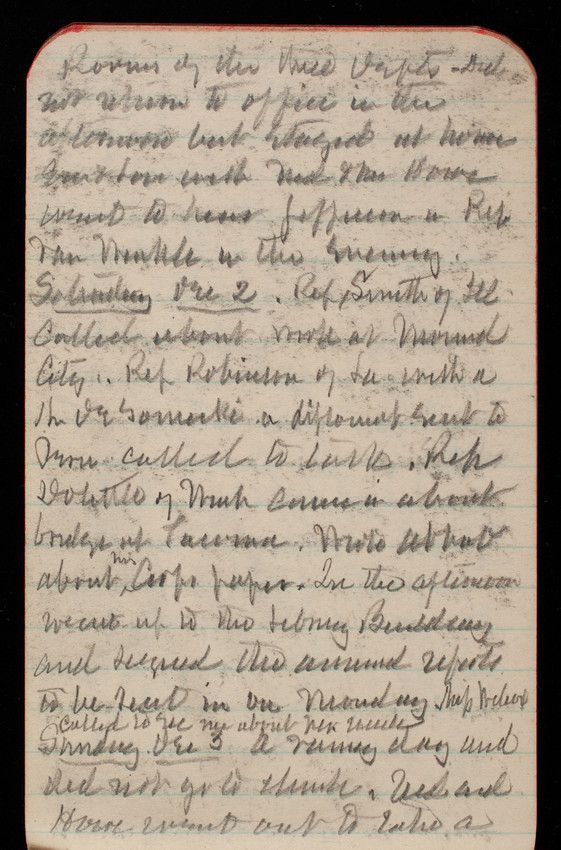 Rooms of the three Depts - Did
not return to office in the
afternoon but stayed at home
with Ned & Mr Howe
went to hear Jefferson in Rip
Van Winkle in the Evening.
Saturday Dec 2. Rep Smith of Ill
called about work at Mound
City. Rep Robinson of La with a
Mr De a diplomat sent to
called to talk. Rep
Dolittle of Wash came in about
bridge at Tacoma. Wrote Abbot
about his Corps paper. In the afternoon
went up to the Library Building
and signed the annual reports
to be sent in on Monday. Miss Wilcox
called to see me about
Sunday Dec 3 A rainy day and
did not go to church. Ned and
Howe went out to take a